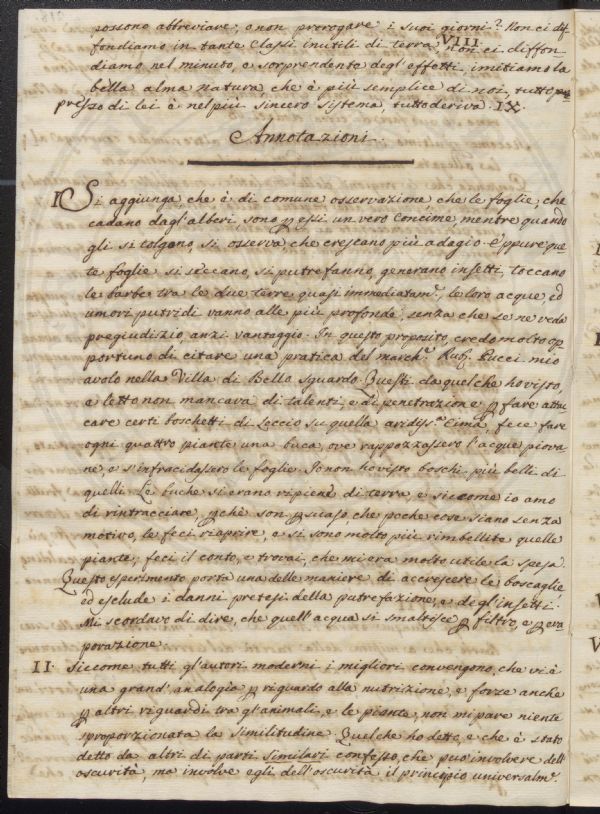 possono abbreviare, o non prorogare i suoi giorni? Non ci dif
fondiamo in tante Classi inutili di terra VIII. non ci diffon-
diamo nel minuto, e sorprendente degl'effetti, imitiamo la
bella alma natura, che è più semplice di noi, tutti
presso di lei è nel più sincero sistema, tutto deriva. IX.
Annotazioni.
I Si aggiunga, che è di comune osservazione che le foglie, che
cadano dagl'alberi, sono p essi un vero Concime, mentre quando
gli si tolgono, si osserva che crescano più adagio. Eppure que
te foglie si seccano, si putrefanno, generano insetti, toccano
le barbe tra le due terre quasi immediatam.e, le loro acque, ed
umori putridi vanno alle più profonde, senza che se ne veda
pregiudizio, anzi vantaggio. In questo proposito, credo molto op
portuno di citare una pratica del march.e Rub. Pucci mio
avolo nella Villa di Bello sguardo. Questi da quel che ho visto,
e letto non mancava di talenti, e di penetrazione p fare attac
care certi boschetti di Leccio su quella aridiss.a Cima, fece fare
ogni quattro piante una buca, ove rappozzassero l'acque piova
ne, e s'infracidassero le foglie. Io non ho visto boschi più belli di
quelli. Le buche si erano ripiene di terra, e siccome io amo
di rintracciare, pche son psuaso, che poche cose siano senza
motivo, le feci riaprire, e si sono molto più rimbellite quelle
piante, feci il conto, e trovai, che mi era molto utile la spesa.
Questo esperimento porta una delle maniere di accrescere le boscaglie,
ed esclude i danni pretesi della putrefazione, e degl'insetti.
Mi scordavo di dire, che quell'acqua si smaltisce p filtro, e p eva
porazione.
II. Siccome tutti gl'autori moderni i migliori convengono, che vi è
una grand'analogia p riguardo alla nutrizione, e forze anche
p altri riguardi tra gl'animali, e le piante, non mi pare niente
sproporzionata la similitudine. Quel che ho detto, e che è stato
detto da altri di parti similari confesso, che può involvere dell'
oscurità, ma involve egli dell'oscurità il principio universalm.e